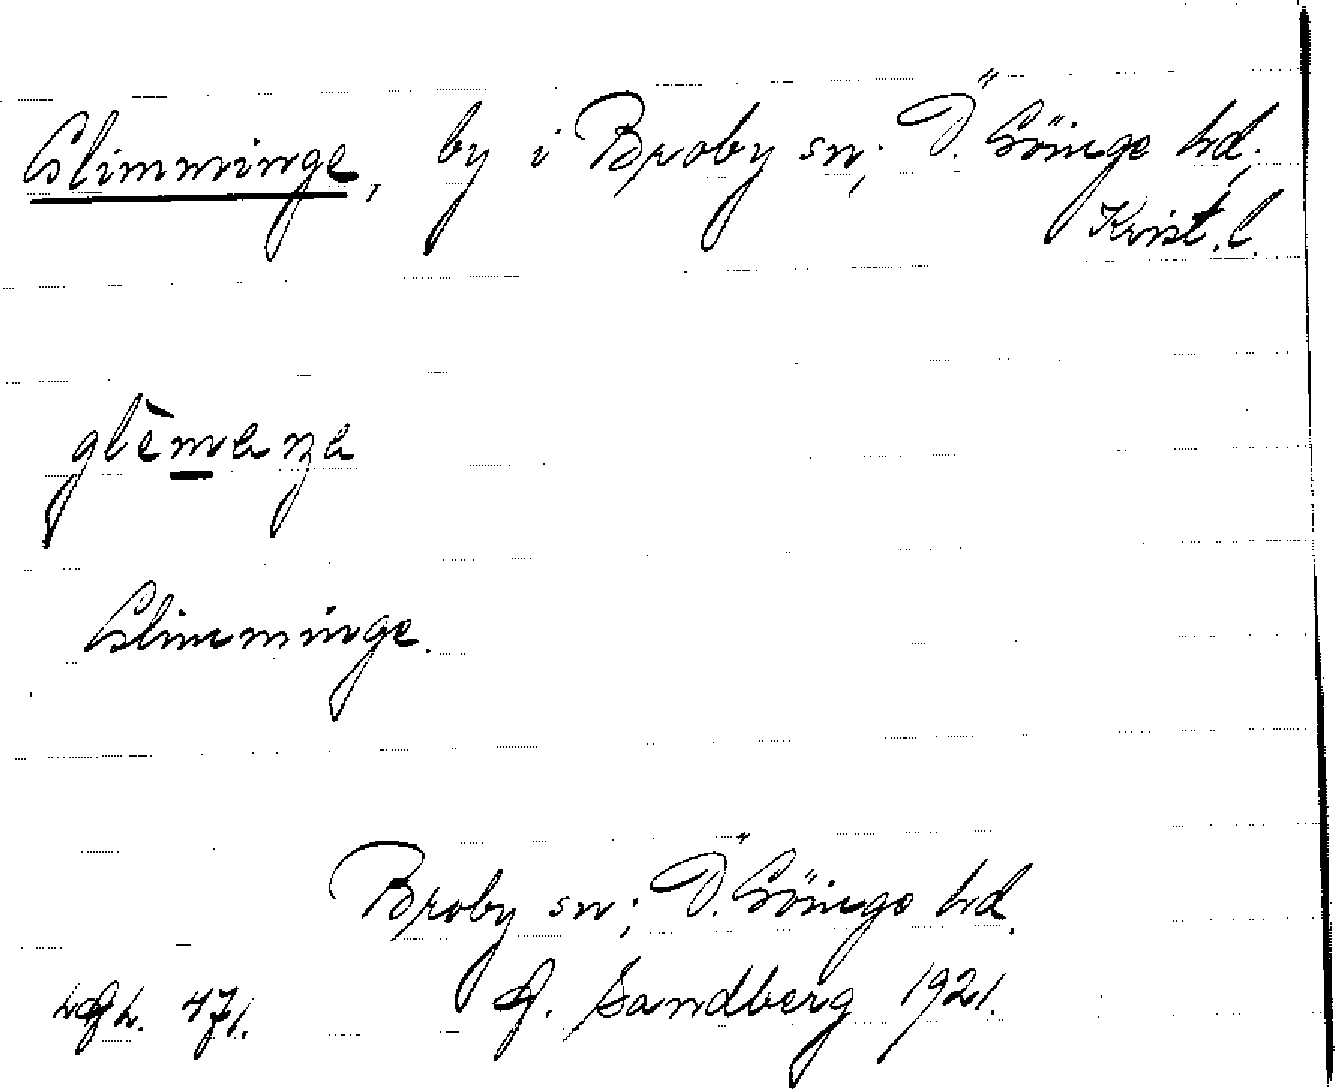 Glimminge, by i Broby sn; Ö. Göinge hd,
Krist. l.
glèmeŋe
Glimminge.
Broby sn; Ö. Göinge hd.
471. Sandberg 1921.